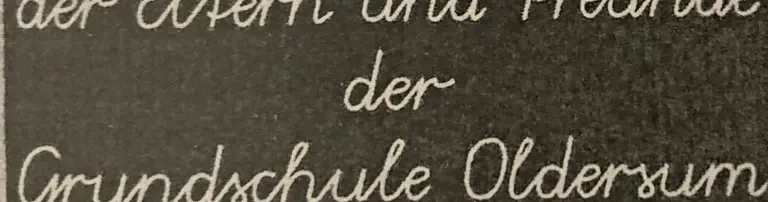 der Eltern und Freunde
der
Grundschule Oldersum